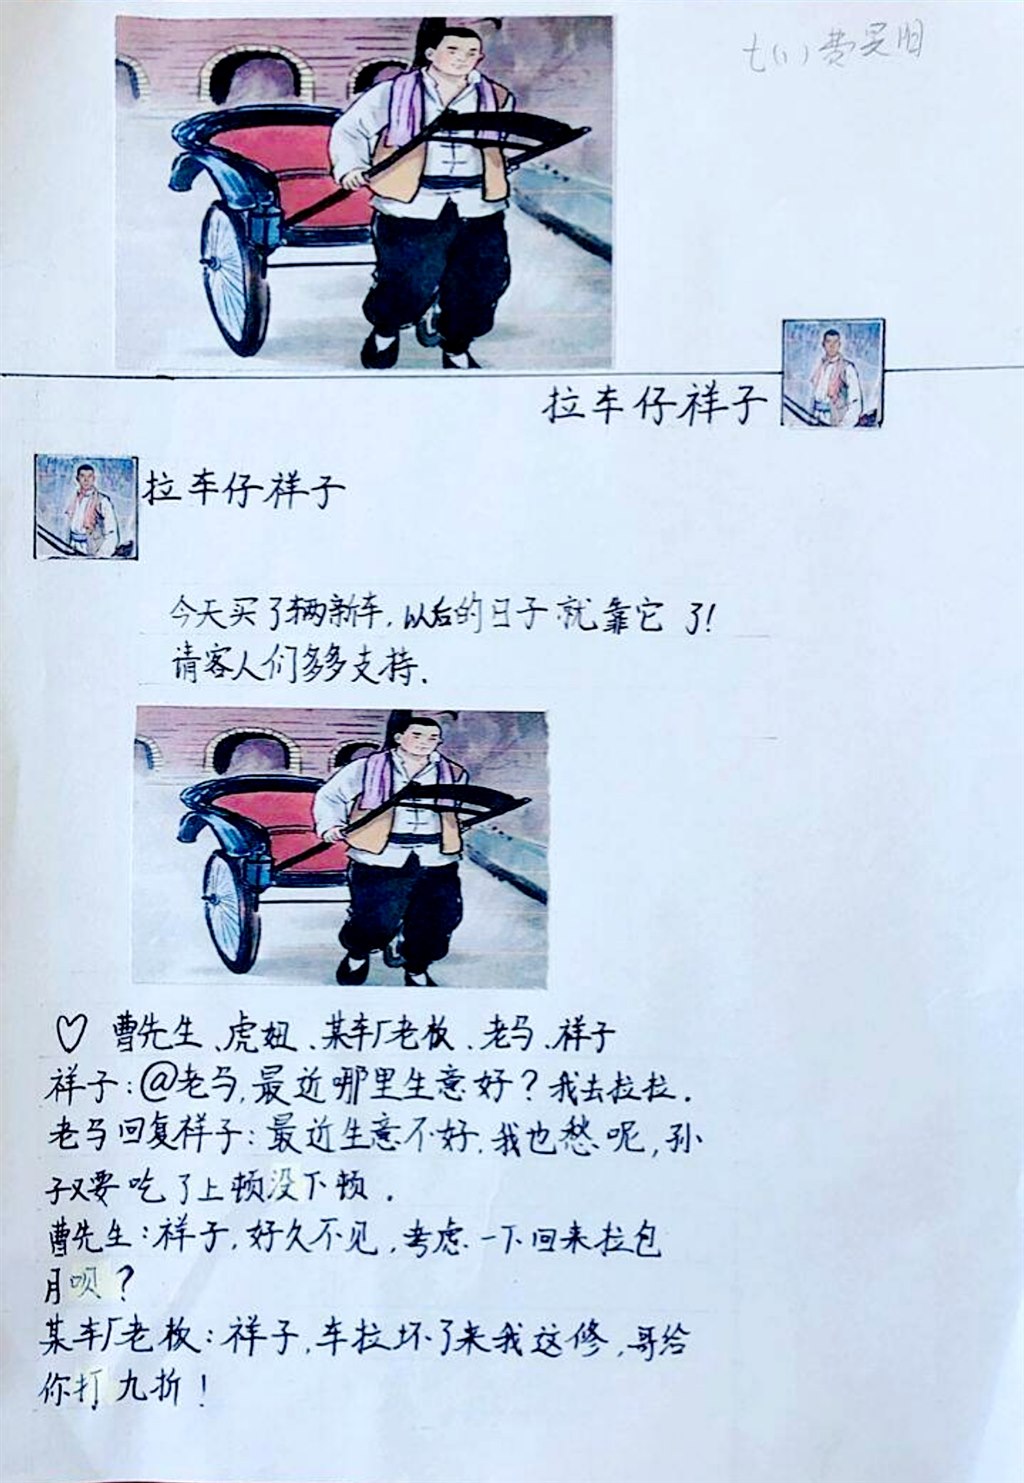 七(1)费昊明
拉车仔祥子
拉车仔祥子
今天买了辆新车,以后的日子就靠它了!
请客人们多多支持.
♡ 曹先生、虎妞、某车厂老板、老马、祥子
祥子:@老马,最近哪里生意好?我去拉拉.
老马回复祥子:最近生意不好,我也愁呢,孙
子又要吃了上顿没下顿.
曹先生:祥子,好久不见,考虑一下回来拉包
月呗?
某车厂老板:祥子,车拉坏了来我这修,哥给
你打九折!